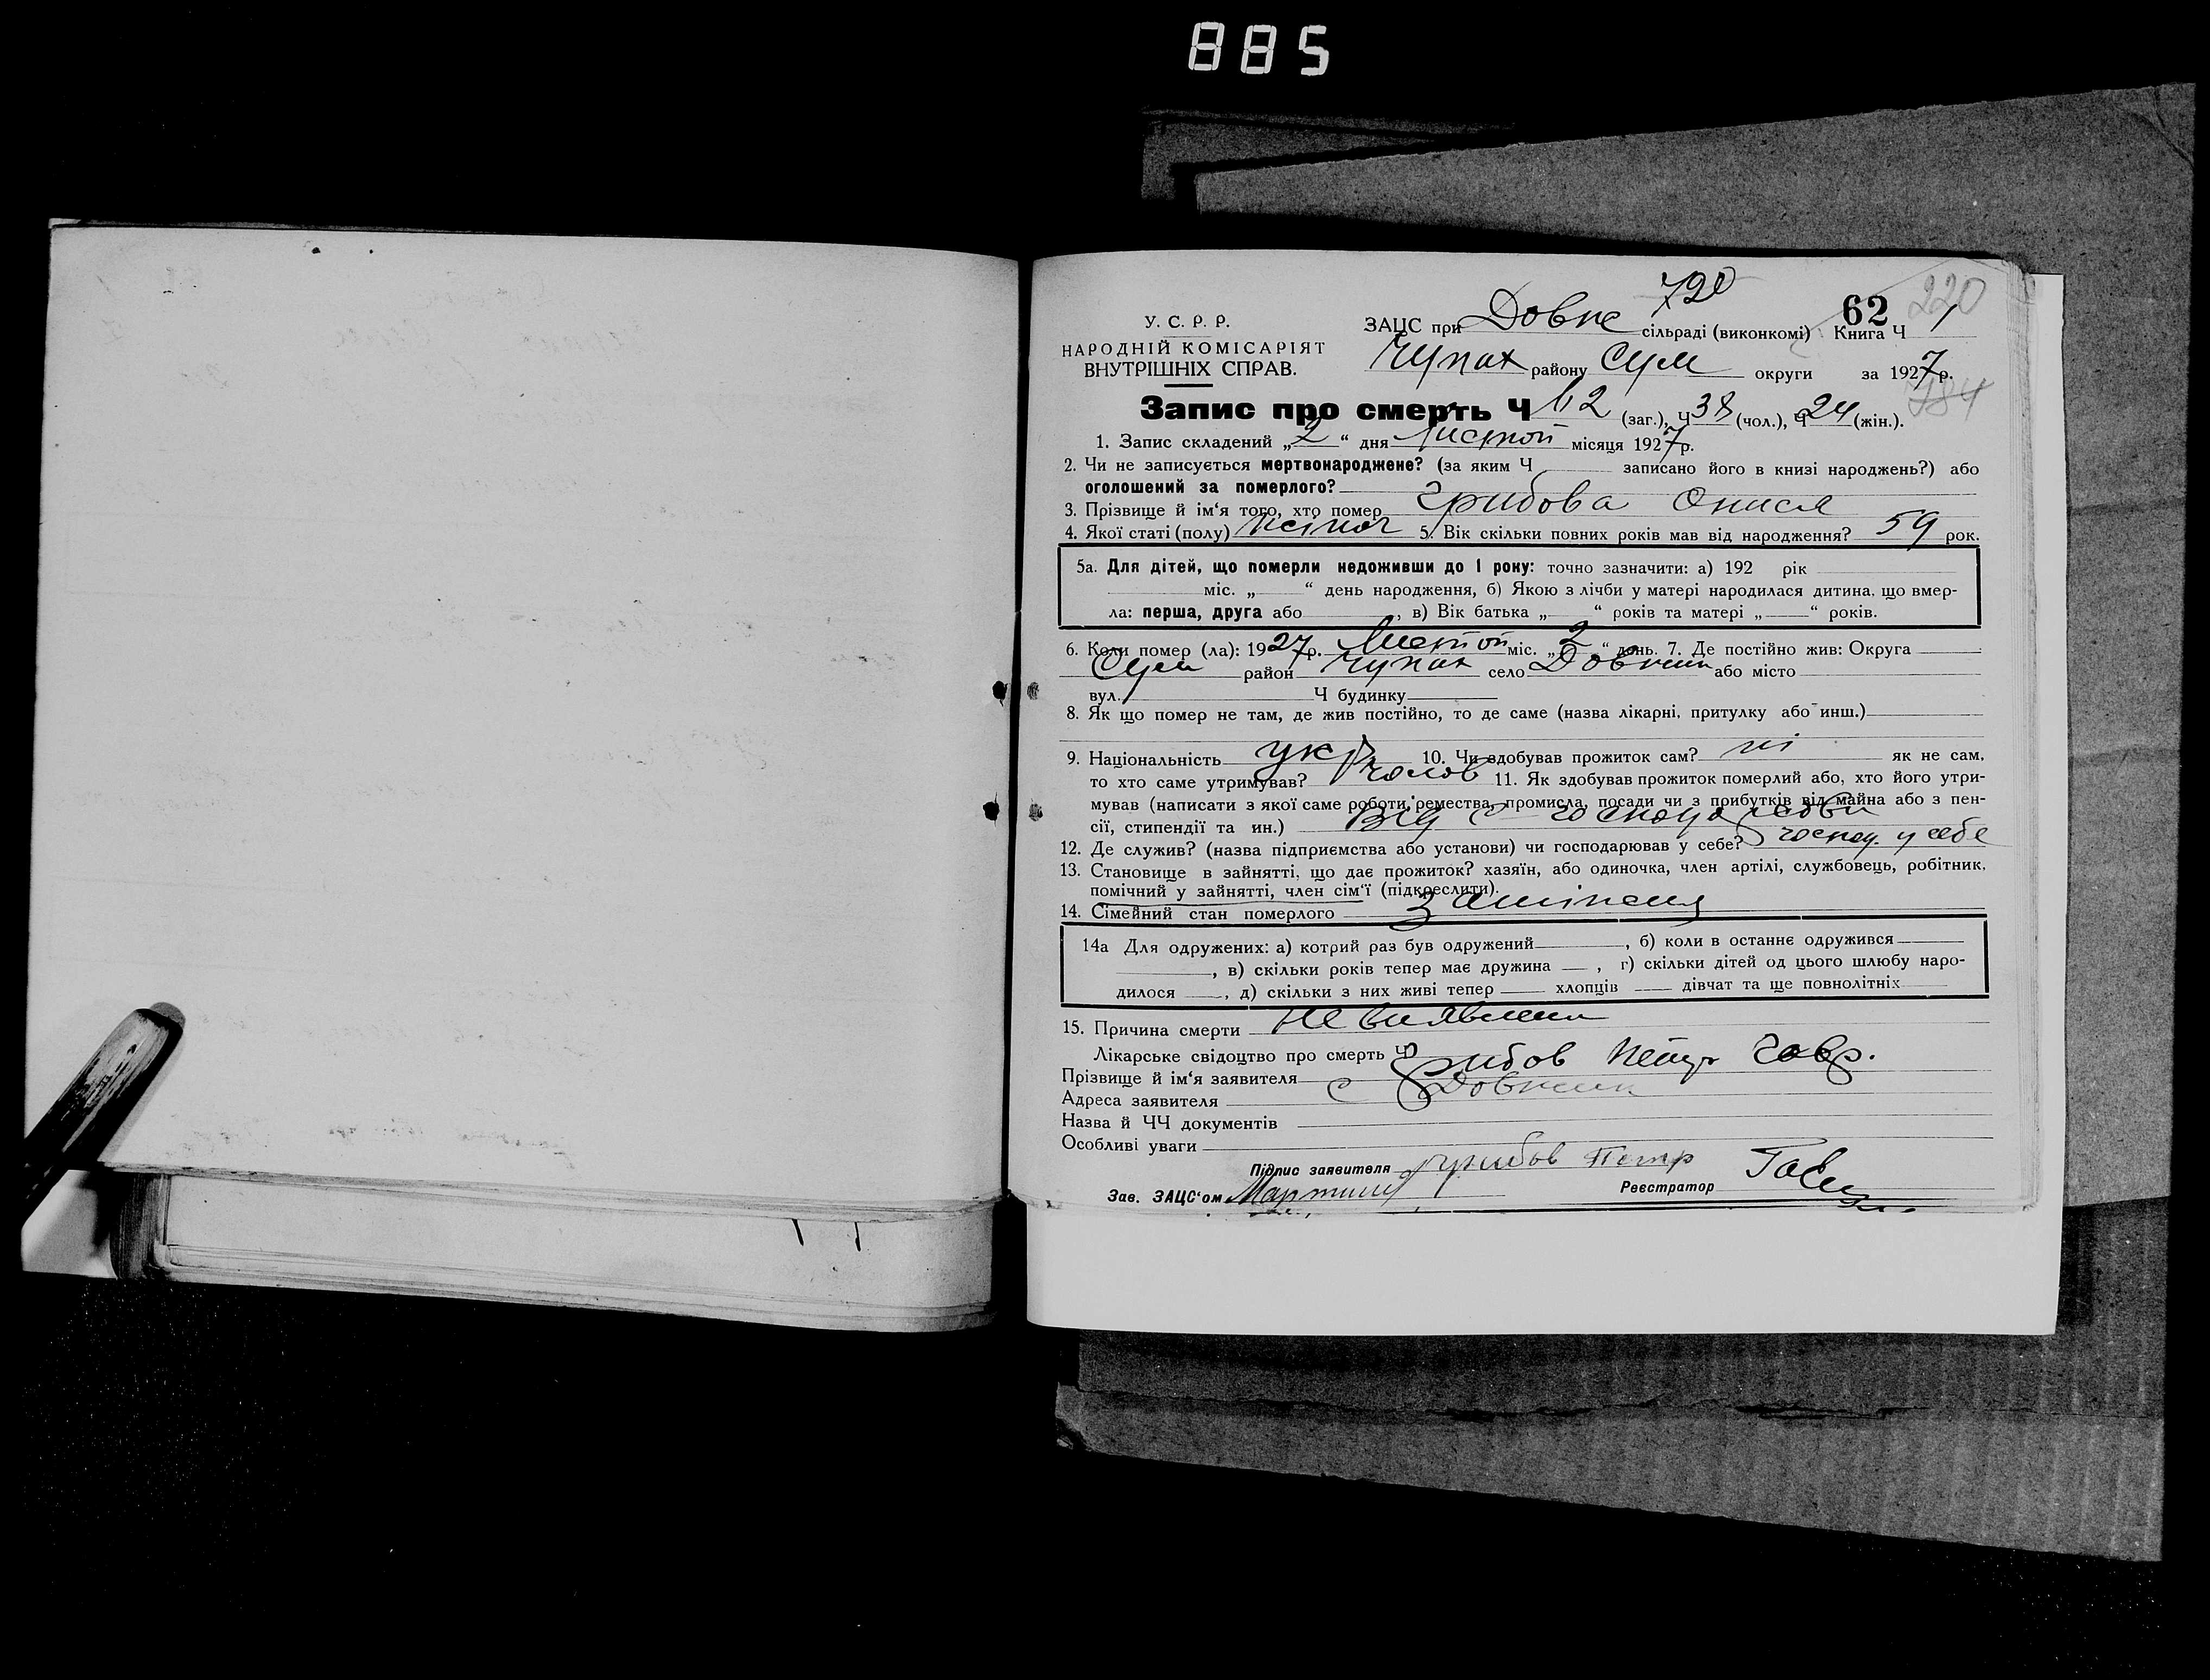 885
720
62 220
У. С. Р. Р. ЗАЦС при Довж сільраді (виконкомі) Книга Ч 1
НАРОДНІЙ КОМІСАРІЯТ
ВНУТРІШНІХ СПРАВ. Чупах району Сум округи за 1927 р.
784
Запис про смерть Ч 62 (заг.), Ч 38 (чол.), Ч 24 (жін.).
1. Запис складений „2“ дня Листоп місяця 1927 р.
2. Чи не записується мертвонароджене? (за яким Ч записано його в книзі народжень?) або
оголошений за померлого?
3. Прізвище й ім'я того, хто помер Грибова Онися
4. Якої статі (полу) жіноч 5. Вік скільки повних років мав від народження? 59 рок.
5а. Для дітей, що померли недоживши до 1 року: точно зазначити: а) 192 рік
міс. „ “ день народження, б) Якою з лічби у матері народилася дитина, що вмер-
ла: перша, друга або , в) Вік батька „ “ років та матері „ “ років.
6. Коли помер (ла): 1927 р. Листоп міс. „2“ день. 7. Де постійно жив: Округа
Сум район Чупах село Довжик або місто
вул. Ч будинку
8. Як що помер не там, де жив постійно, то де саме (назва лікарні, притулку або инш.)
9. Національність укр 10. Чи здобував прожиток сам? ні як не сам,
то хто саме утримував? чолов 11. Як здобував прожиток померлий або, хто його утри-
мував (написати з якої саме роботи, ремества, промисла, посади чи з прибутків від майна або з пен-
сії, стипендії та ин.) Від с-господарства
12. Де служив? (назва підприємства або установи) чи господарював у себе? господ. у себе
13. Становище в зайнятті, що дає прожиток? хазяїн, або одиночка, член артілі, службовець, робітник,
помічний у зайнятті, член сім'ї (підкреслити).
14. Сімейний стан померлого заміжня
14а Для одружених: а) котрий раз був одружений , б) коли в останнє одружився
, в) скільки років тепер має дружина , г) скільки дітей од цього шлюбу наро-
дилося , д) скільки з них живі тепер хлопців дівчат та ще повнолітніх
15. Причина смерти не виявлена
Лікарське свідоцтво про смерть Ч
Прізвище й ім'я заявителя Грибов Петр Гавр.
Адреса заявителя с Довжик
Назва й ЧЧ документів
Особливі уваги
Підпис заявителя Грибов Петр
Зав. ЗАЦС'ом Реєстратор